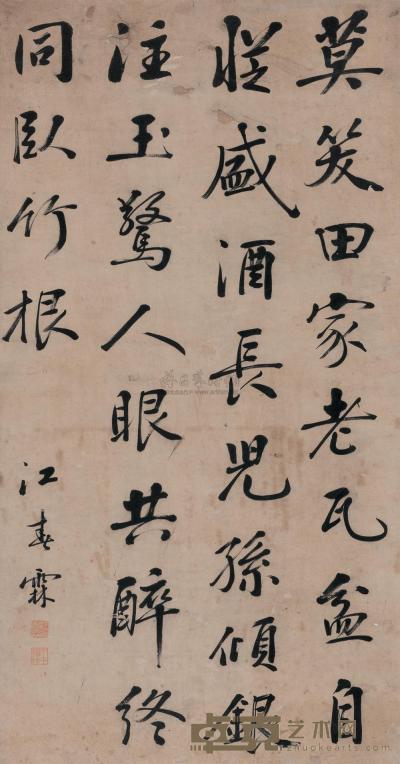 莫笑田家老瓦盆自
從盛酒長兒孫傾銀
注玉驚人眼共醉終
同臥竹根
江春霖
卓克艺术网
zhuokearts.com